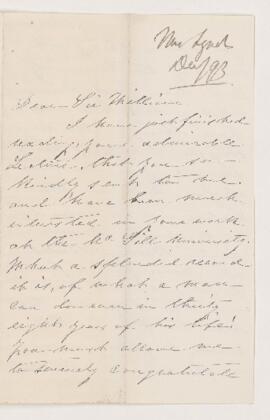 Dec/93
Dear Sir William
I have just finished
reading your admirable
that you so
kindly sent to me
and I have been much
interested in your work
at the McGill University.
What a splendid record
it is, of what a man
can do even in thirty
eight years of his life!
You must allow me
to sincerely congratulate